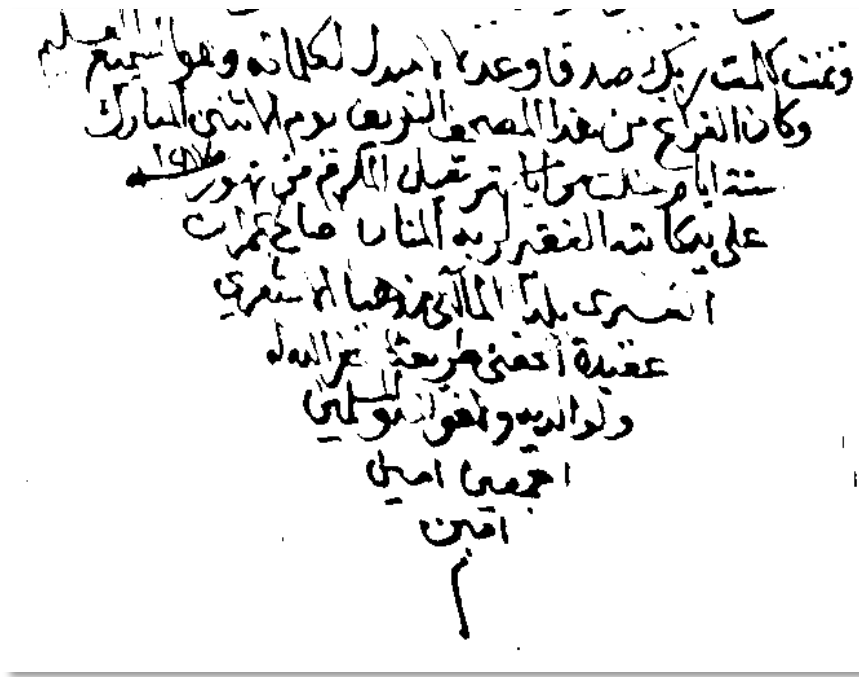 وتمت كلمت ربك صدقا وعدلا لا مبدل لكلماته وهو السميع العليم
وكان الفراغ من هذا المصحف الشريف يوم الاثنين المبارك
ستة ايام خلت من المكرم من شهور
على يد كاتبه الفقير لربه المنان صالح عمران
بلدا المالكى مذهبا الاشعري
عقيدة طريقة غفر الله له
ولوالديه والمسلمين
اجمعين امين
امين
م